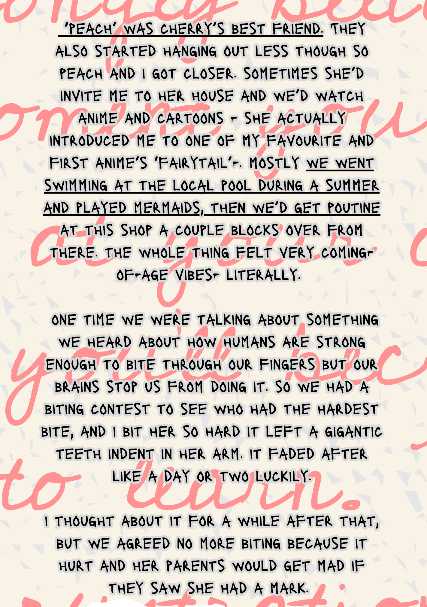 'PEACH' WAS CHERRY'S BEST FRIEND. THEY
ALSO STARTED HANGING OUT LESS THOUGH SO
PEACH AND I GOT CLOSER. SOMETIMES SHE'D
INVITE ME TO HER HOUSE AND WE'D WATCH
ANIME AND CARTOONS - SHE ACTUALLY
INTRODUCED ME TO ONE OF MY FAVOURITE AND
FIRST ANIME'S 'FAIRYTAIL'-. MOSTLY WE WENT
SWIMMING AT THE LOCAL POOL DURING A SUMMER
AND PLAYED MERMAIDS, THEN WE'D GET POUTINE
AT THIS SHOP A COUPLE BLOCKS OVER FROM
THERE. THE WHOLE THING FELT VERY COMING-
OF-AGE VIBES- LITERALLY.
ONE TIME WE WERE TALKING ABOUT SOMETHING
WE HEARD ABOUT HOW HUMANS ARE STRONG
ENOUGH TO BITE THROUGH OUR FINGERS BUT OUR
BRAINS STOP US FROM DOING IT. SO WE HAD A
BITING CONTEST TO SEE WHO HAD THE HARDEST
BITE, AND I BIT HER SO HARD IT LEFT A GIGANTIC
TEETH INDENT IN HER ARM. IT FADED AFTER
LIKE A DAY OR TWO LUCKILY.
to learn.
I THOUGHT ABOUT IT FOR A WHILE AFTER THAT,
BUT WE AGREED NO MORE BITING BECAUSE IT
HURT AND HER PARENTS WOULD GET MAD IF
THEY SAW SHE HAD A MARK.